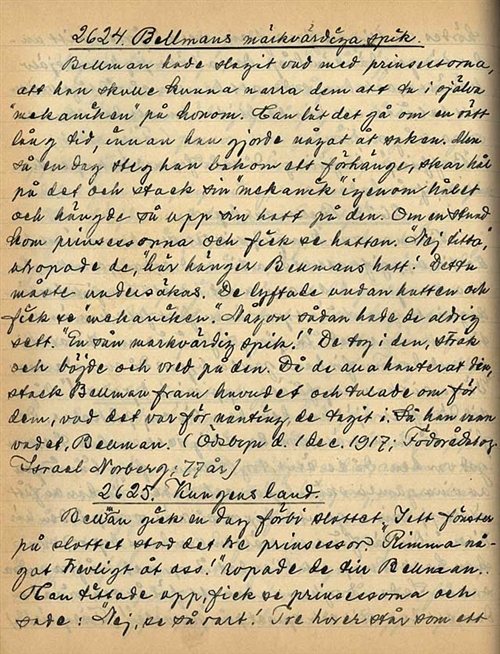 2624. Bellmans märkvärdiga spik.
Bellman hade slagit vad med prinsessorna,
att han skulle kunna narra dem att ta i själva
"mekaniken" på honom. Han lät det gå om en rätt
lång tid, innan han gjorde något åt saken. Men
så en dag steg han bakom ett förhänge, skar hål
på det och stack sin "mekanik" igenom hålet
och hängde så upp sin hatt på den. Om en stund
kom prinsessorna och fick se hatten. "Nej titta,"
utropade de, "här hänger Bellmans hatt! Detta
måste undersökas." De lyftade undan hatten och
fick se "mekaniken." Någon sådan hade de aldrig
sett. "En sån markvärdig spik!" De tog i den, strök
och böjde och vred på den. Då de alla hanterat den,
stack Bellman fram huvudet och talade om för
dem, vad det var för nånting, de tagit i. Så han vann
vadet, Bellman. (Ödsbyn d. 1 dec. 1917; Födorådstag.
Israel Norberg; 77 år.)
2625. Kungens land.
Bellman gick en dag förbi slottet. I ett fönster
på slottet stod det tre prinsessor. "Rimma nå-
got trevligt åt oss!" ropade de till Bellman.
Han tittade opp, fick se prinsessorna och
sade: "Nej, se så rart! Tre horer står som ett